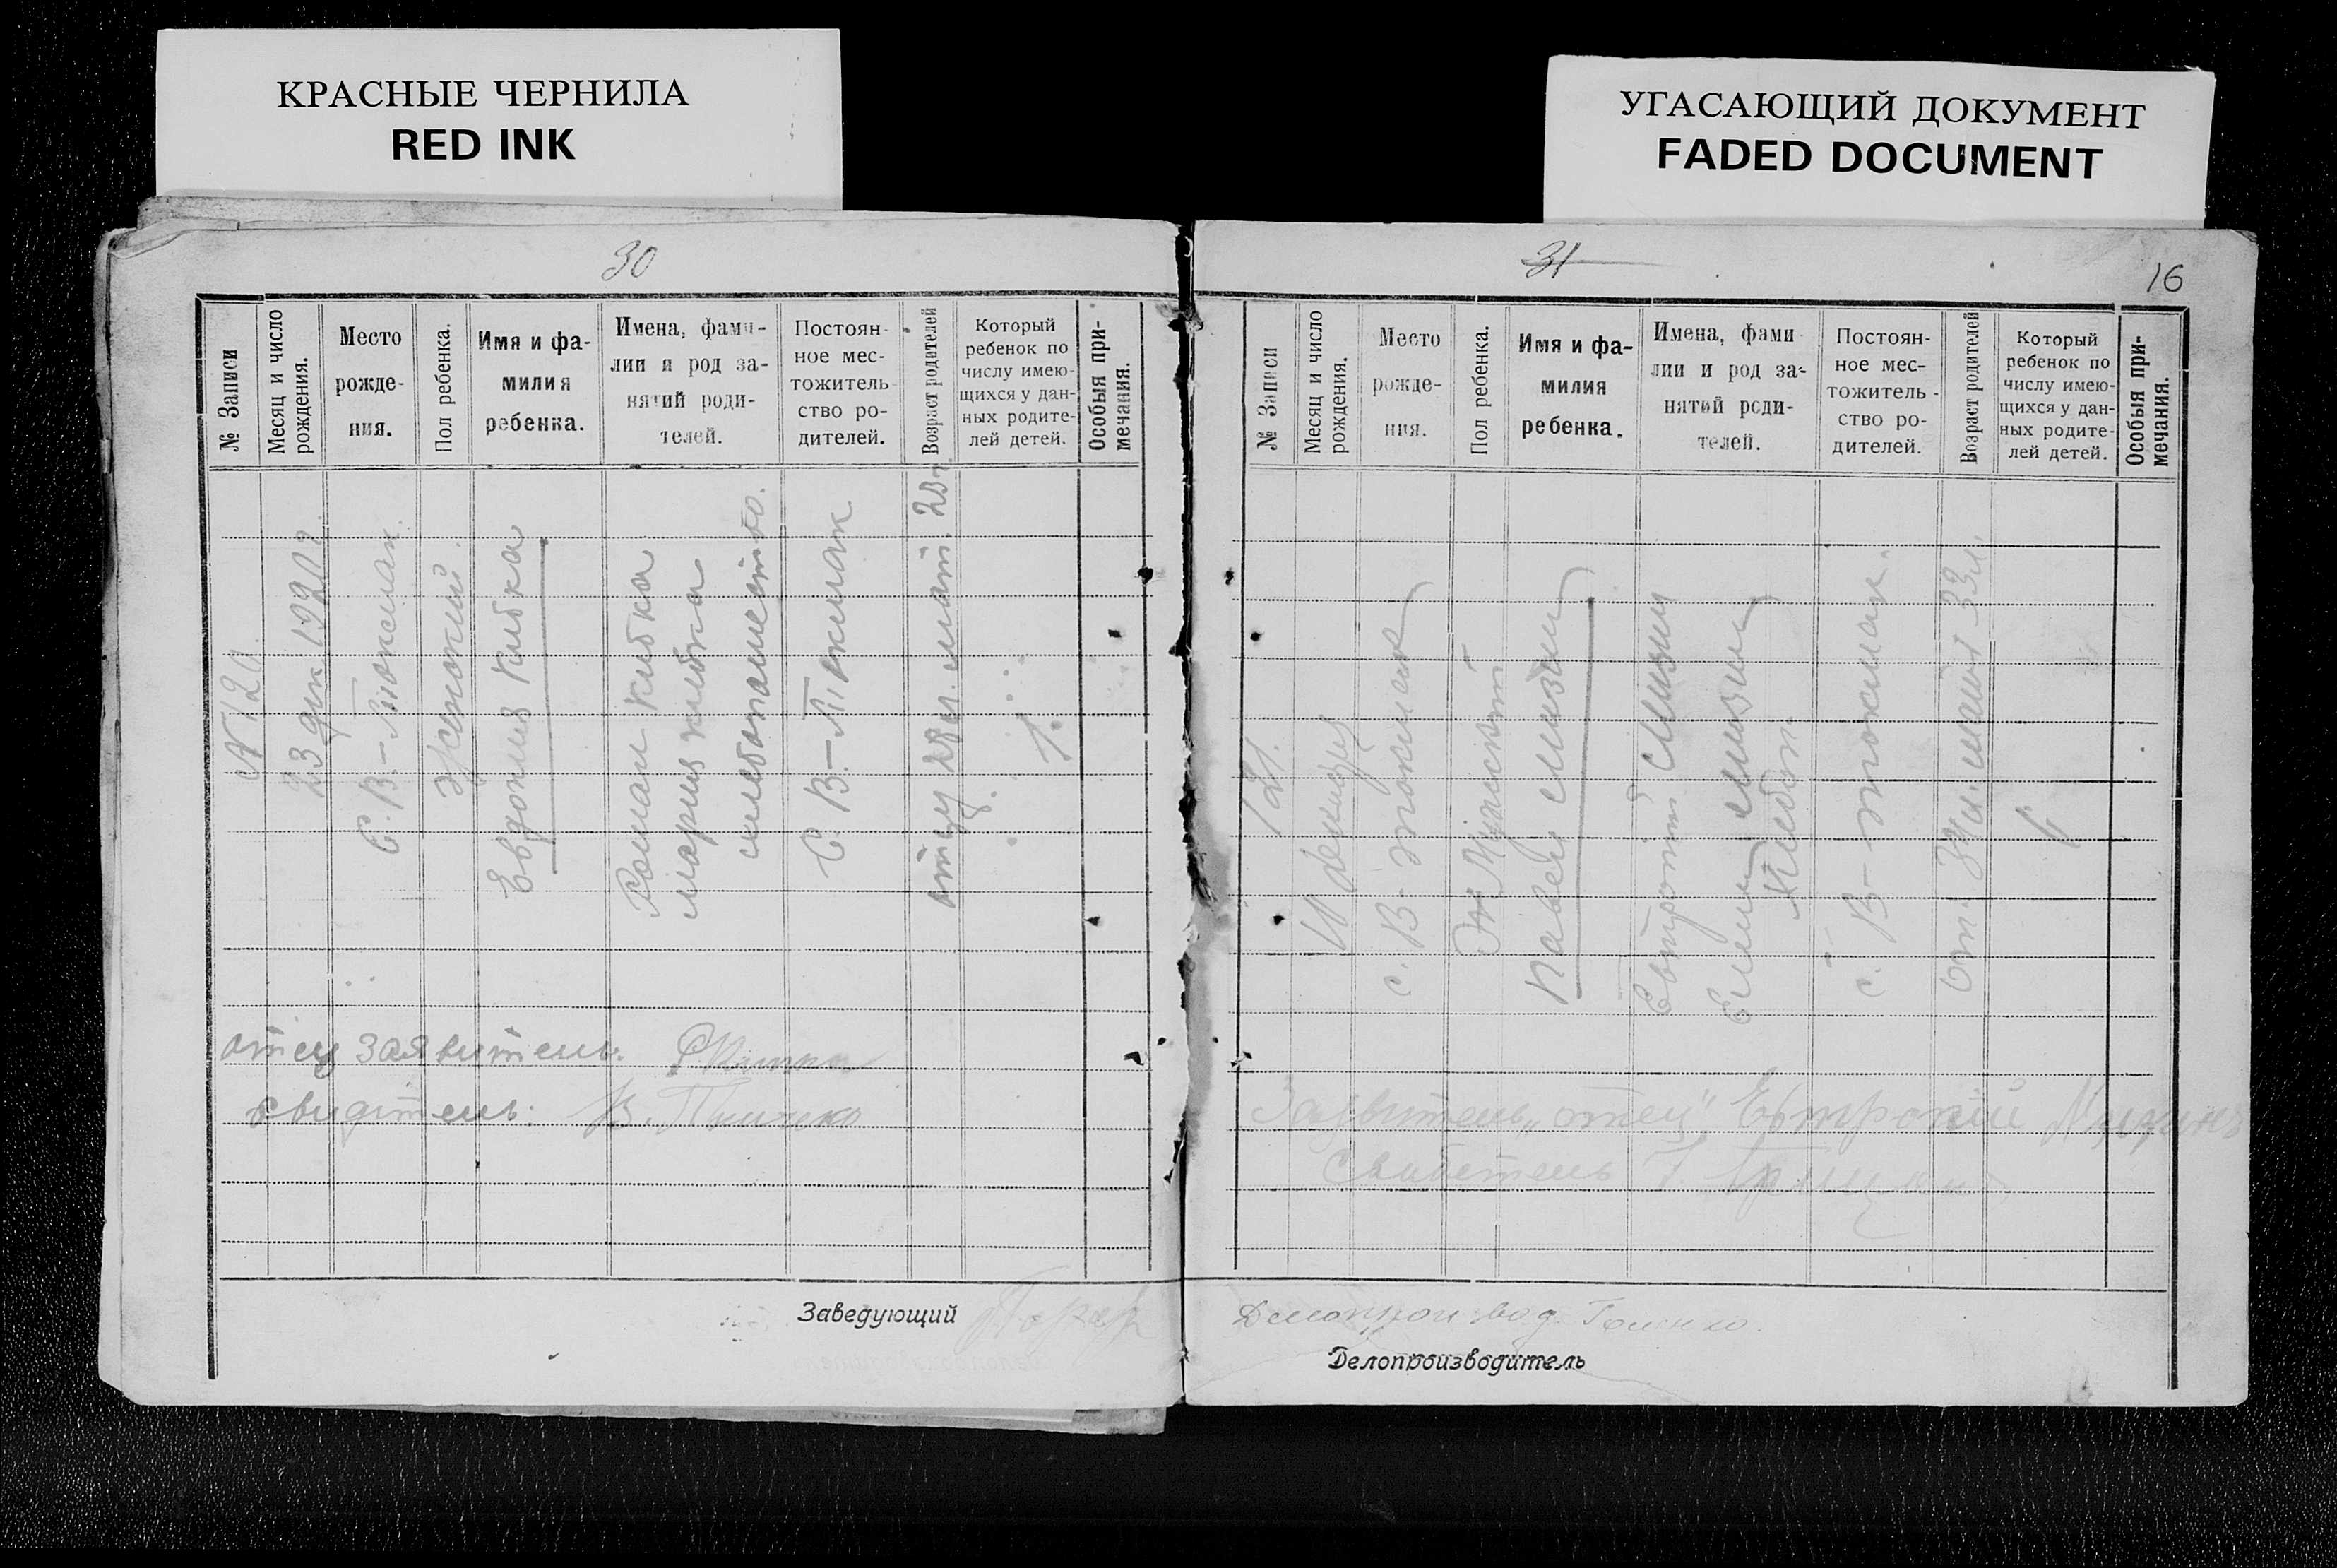 КРАСНЫЕ ЧЕРНИЛА
RED INK
УГАСАЮЩИЙ ДОКУМЕНТ
FADED DOCUMENT
30
№ Записи
Месяц и число
рождения.
Место
рожде-
ния.
Пол ребенка.
Имя и фа-
милия
ребенка.
Имена, фами-
лии и род за-
нятий роди-
телей.
Постоян-
ное мес-
тожитель-
ство ро-
дителей.
Возраст родителей
Который
ребенок по
числу имею-
щихся у дан-
ных родите-
лей детей.
Особыя при-
мечания.
23 дек. 1920 г.
С. В.-Токмак.
Женский.
Евдокия Кибка
Роман Кибка
Мария Кибка
хлебопашество.
С. В.-Токмак
отцу 28 л. мат. 28 л.
1.
отец заявитель.
свидетель: В.
Заведующий
31
16
№ Записи
Месяц и число
рождения.
Место
рожде-
ния.
Пол ребенка.
Имя и фа-
милия
ребенка.
Имена, фами-
лии и род за-
нятий роди-
телей.
Постоян-
ное мес-
тожитель-
ство ро-
дителей.
Возраст родителей
Который
ребенок по
числу имею-
щихся у дан-
ных родите-
лей детей.
Особыя при-
мечания.
121.
с. В-токмак
Павел Мизин
Мизин
Мизин
с. В-токмак.
от. мать 33 л.
Заявитель „отец"
Свидетель
Делопроизвод.
Делопроизводитель